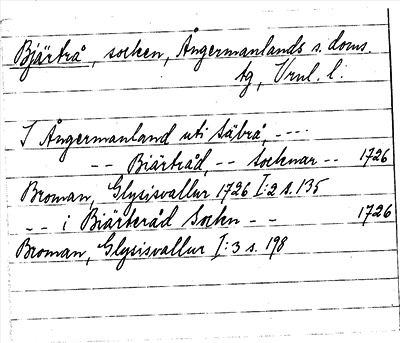 Bjärtrå, socken, Ångermanlands s. doms.
tg, Vrnl. l.
I Ångermanland uti Säbrå, ---.
-- Biärtråd, -- Socknar -- 1726
Broman, Glysisvallur 1726 I:2 s. 135
-- i Biärteråd Sockn -- 1726
Broman, Glysisvallur I:3 s. 198